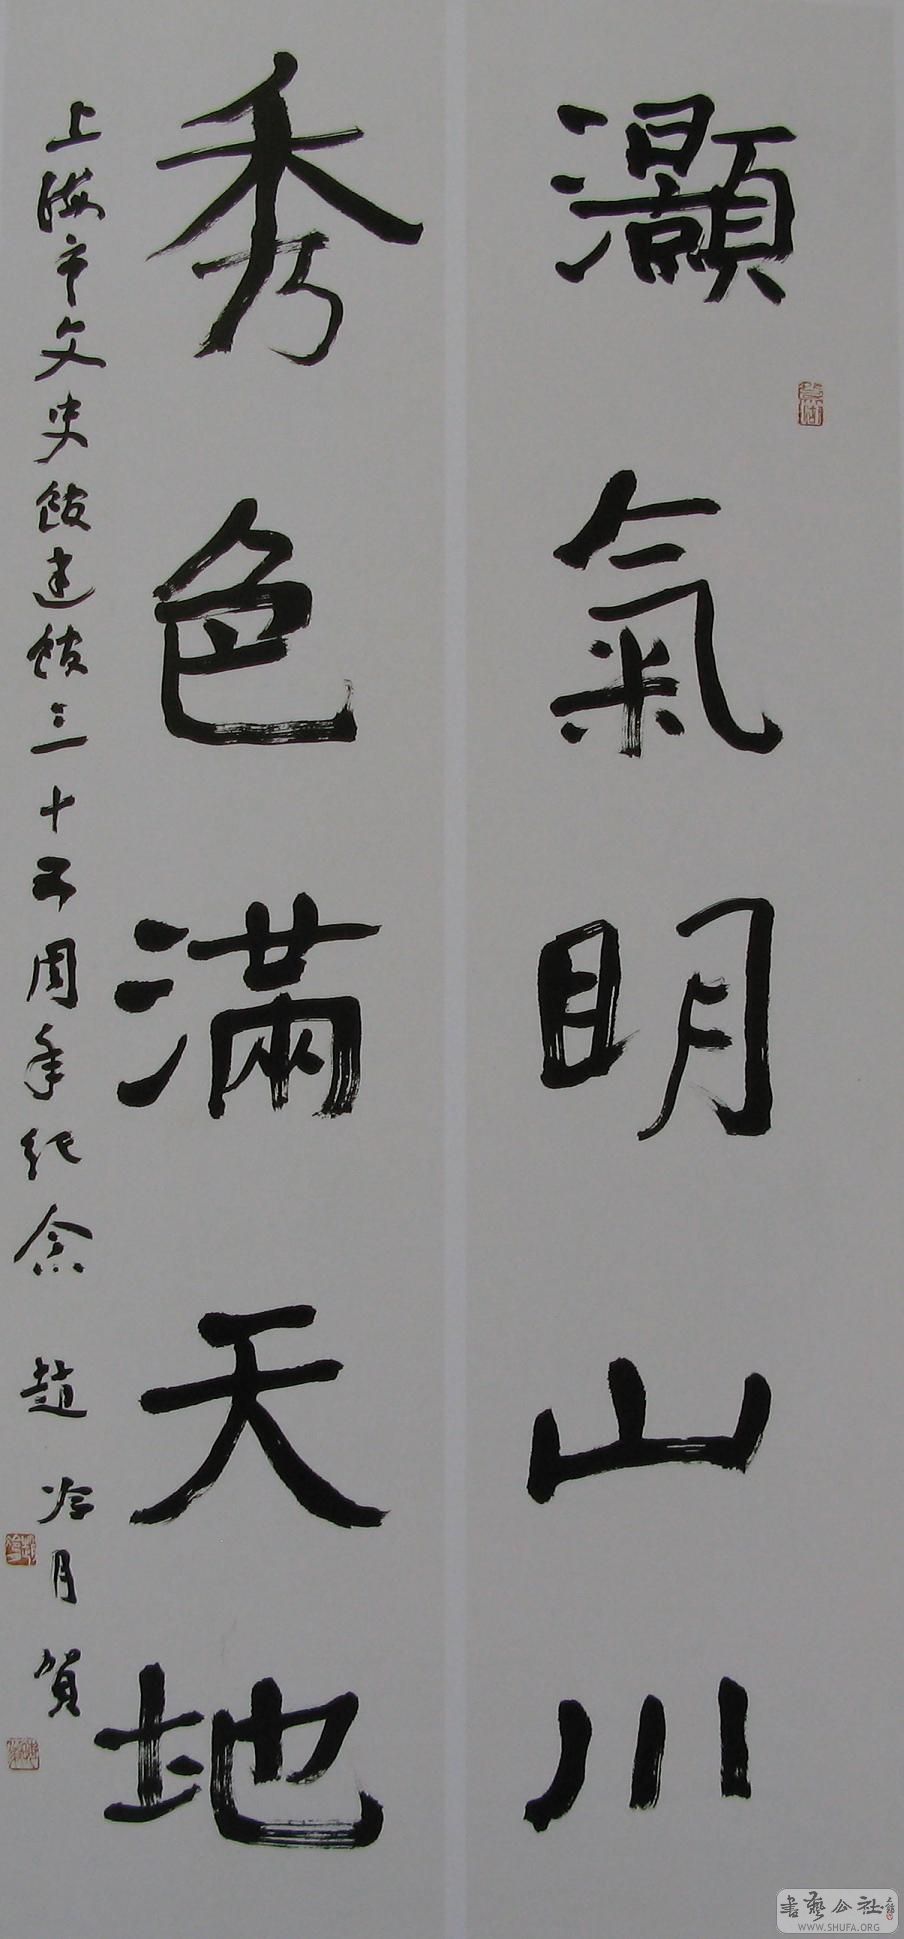 灝氣明山川
秀色滿天地
上海市文史館建館三十五周年紀念 趙冷月賀
書藝公社
WWW.SHUFA.ORG